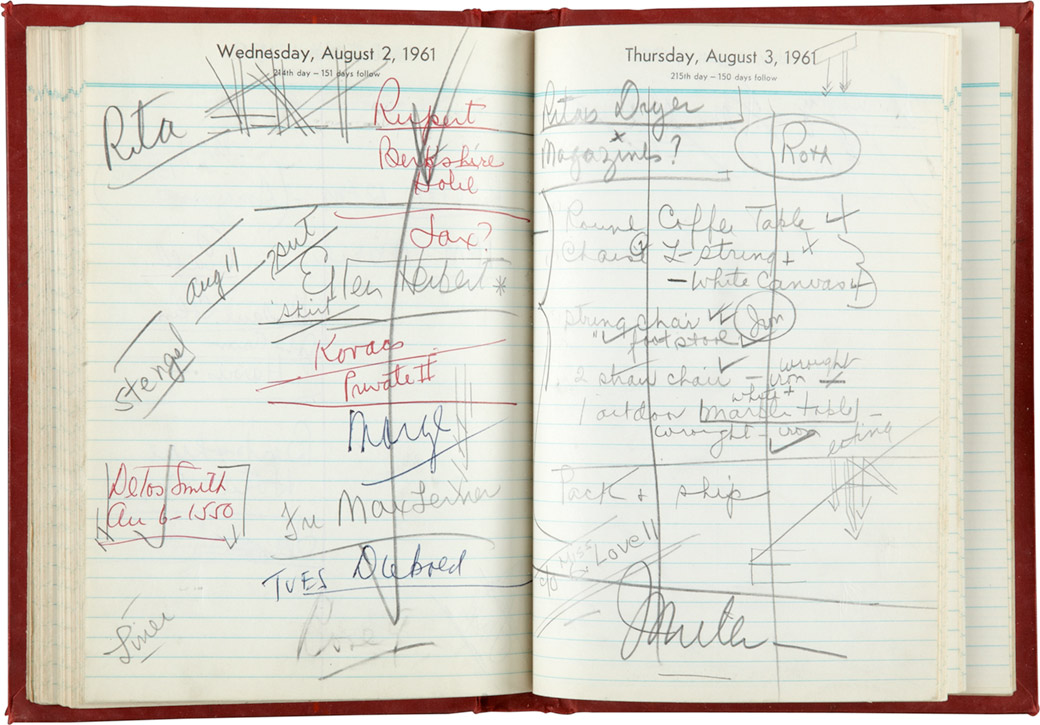 Wednesday, August 2, 1961
214th day – 151 days follow
Rita
Rupert
Berkshire
Hotel
Aug 11
put
Jax?
Ellen Herbert *
skirt
Stengel
Kovacs
Private II
Marge
Delos Smith
An 6-1550
Max Lerner
TUES
Thursday, August 3, 1961
215th day – 150 days follow
Ritas Dryer
Magazines?
Round Coffee Table
Chais 2-String +
- White Canvas
String chair
" foot stool
Jim
2 straw chair - wrought
iron
white +
1 outdoor marble table -
wrought - iron
eating
Pack + ship
c/o Miss Lovell